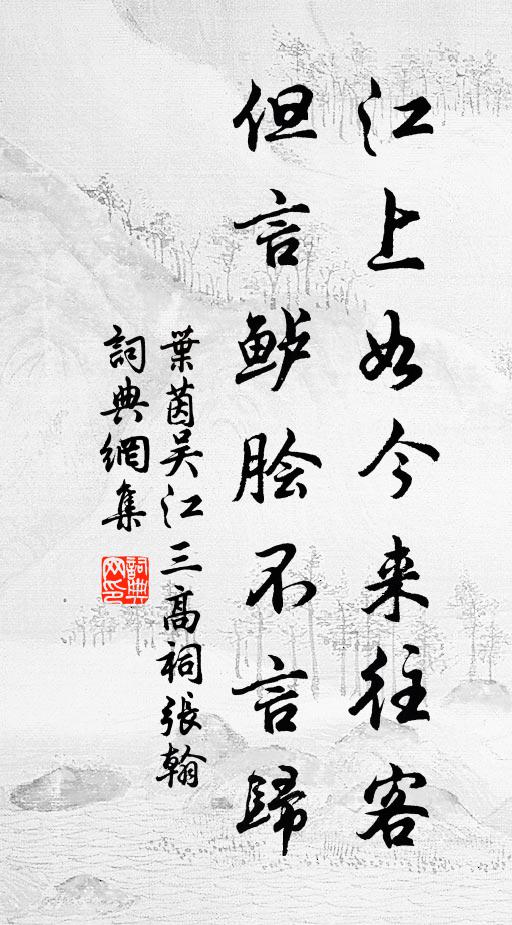 江上如今来往客
但言鲈脍不言歸
葉茵吴江三高祠張翰
詞典網集
詞典網印